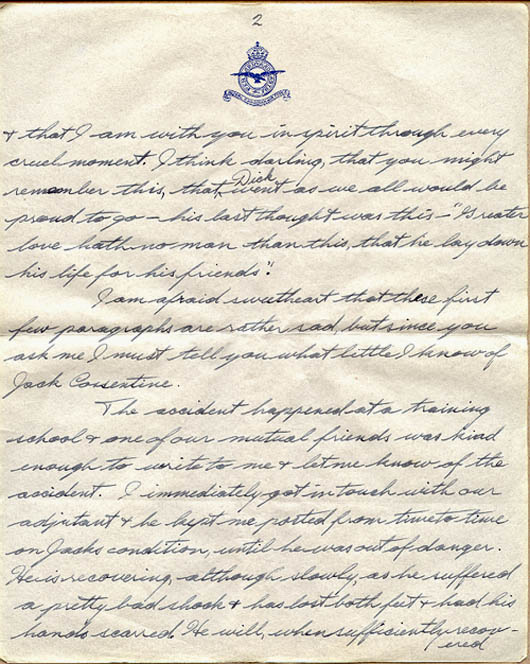 2
& that I am with you in spirit through every
cruel moment. I think darling, that you might
remember this, that Dick went as we all would be
proud to go – his last thought was this – "Greater
love hath no man than this, that he lay down
his life for his friends".
I am afraid sweetheart that these first
few paragraphs are rather sad, but since you
ask me I must tell you what little I know of
Jack Cossentine.
The accident happened at a training
school & one of our mutual friends was kind
enough to write to me & let me know of the
accident. I immediately got in touch with our
adjutant & he kept me posted from time to time
on Jacks condition, until he was out of danger.
He is recovering, although slowly, as he suffered
a pretty bad shock & has lost both feet & had his
hands scarred. He will, when sufficiently recov-
ered